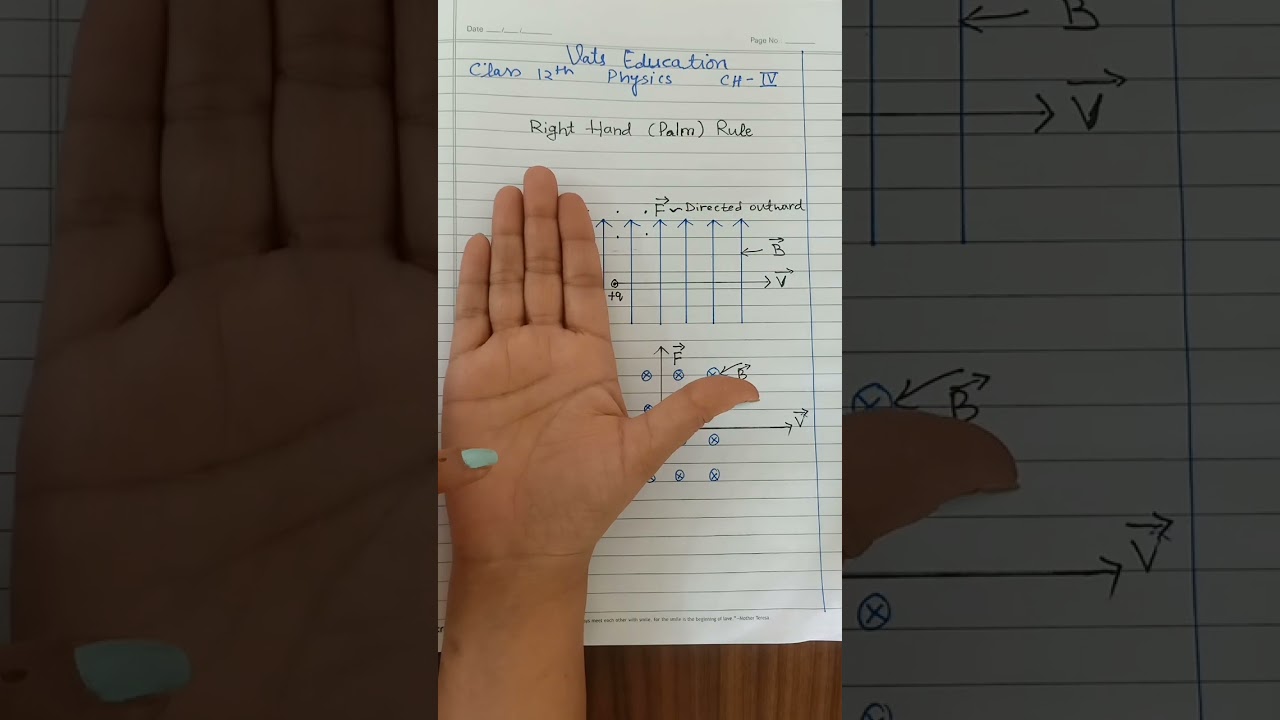 Date ___/___/_____
Page No. ______
Vats Education
Class 12th Physics CH-IV
Right Hand (Palm) Rule
F Directed outward
B
V
+q
F
B
V
meet each other with smile, for the smile is the beginning of love." -Mother Teresa
B
V
B
V